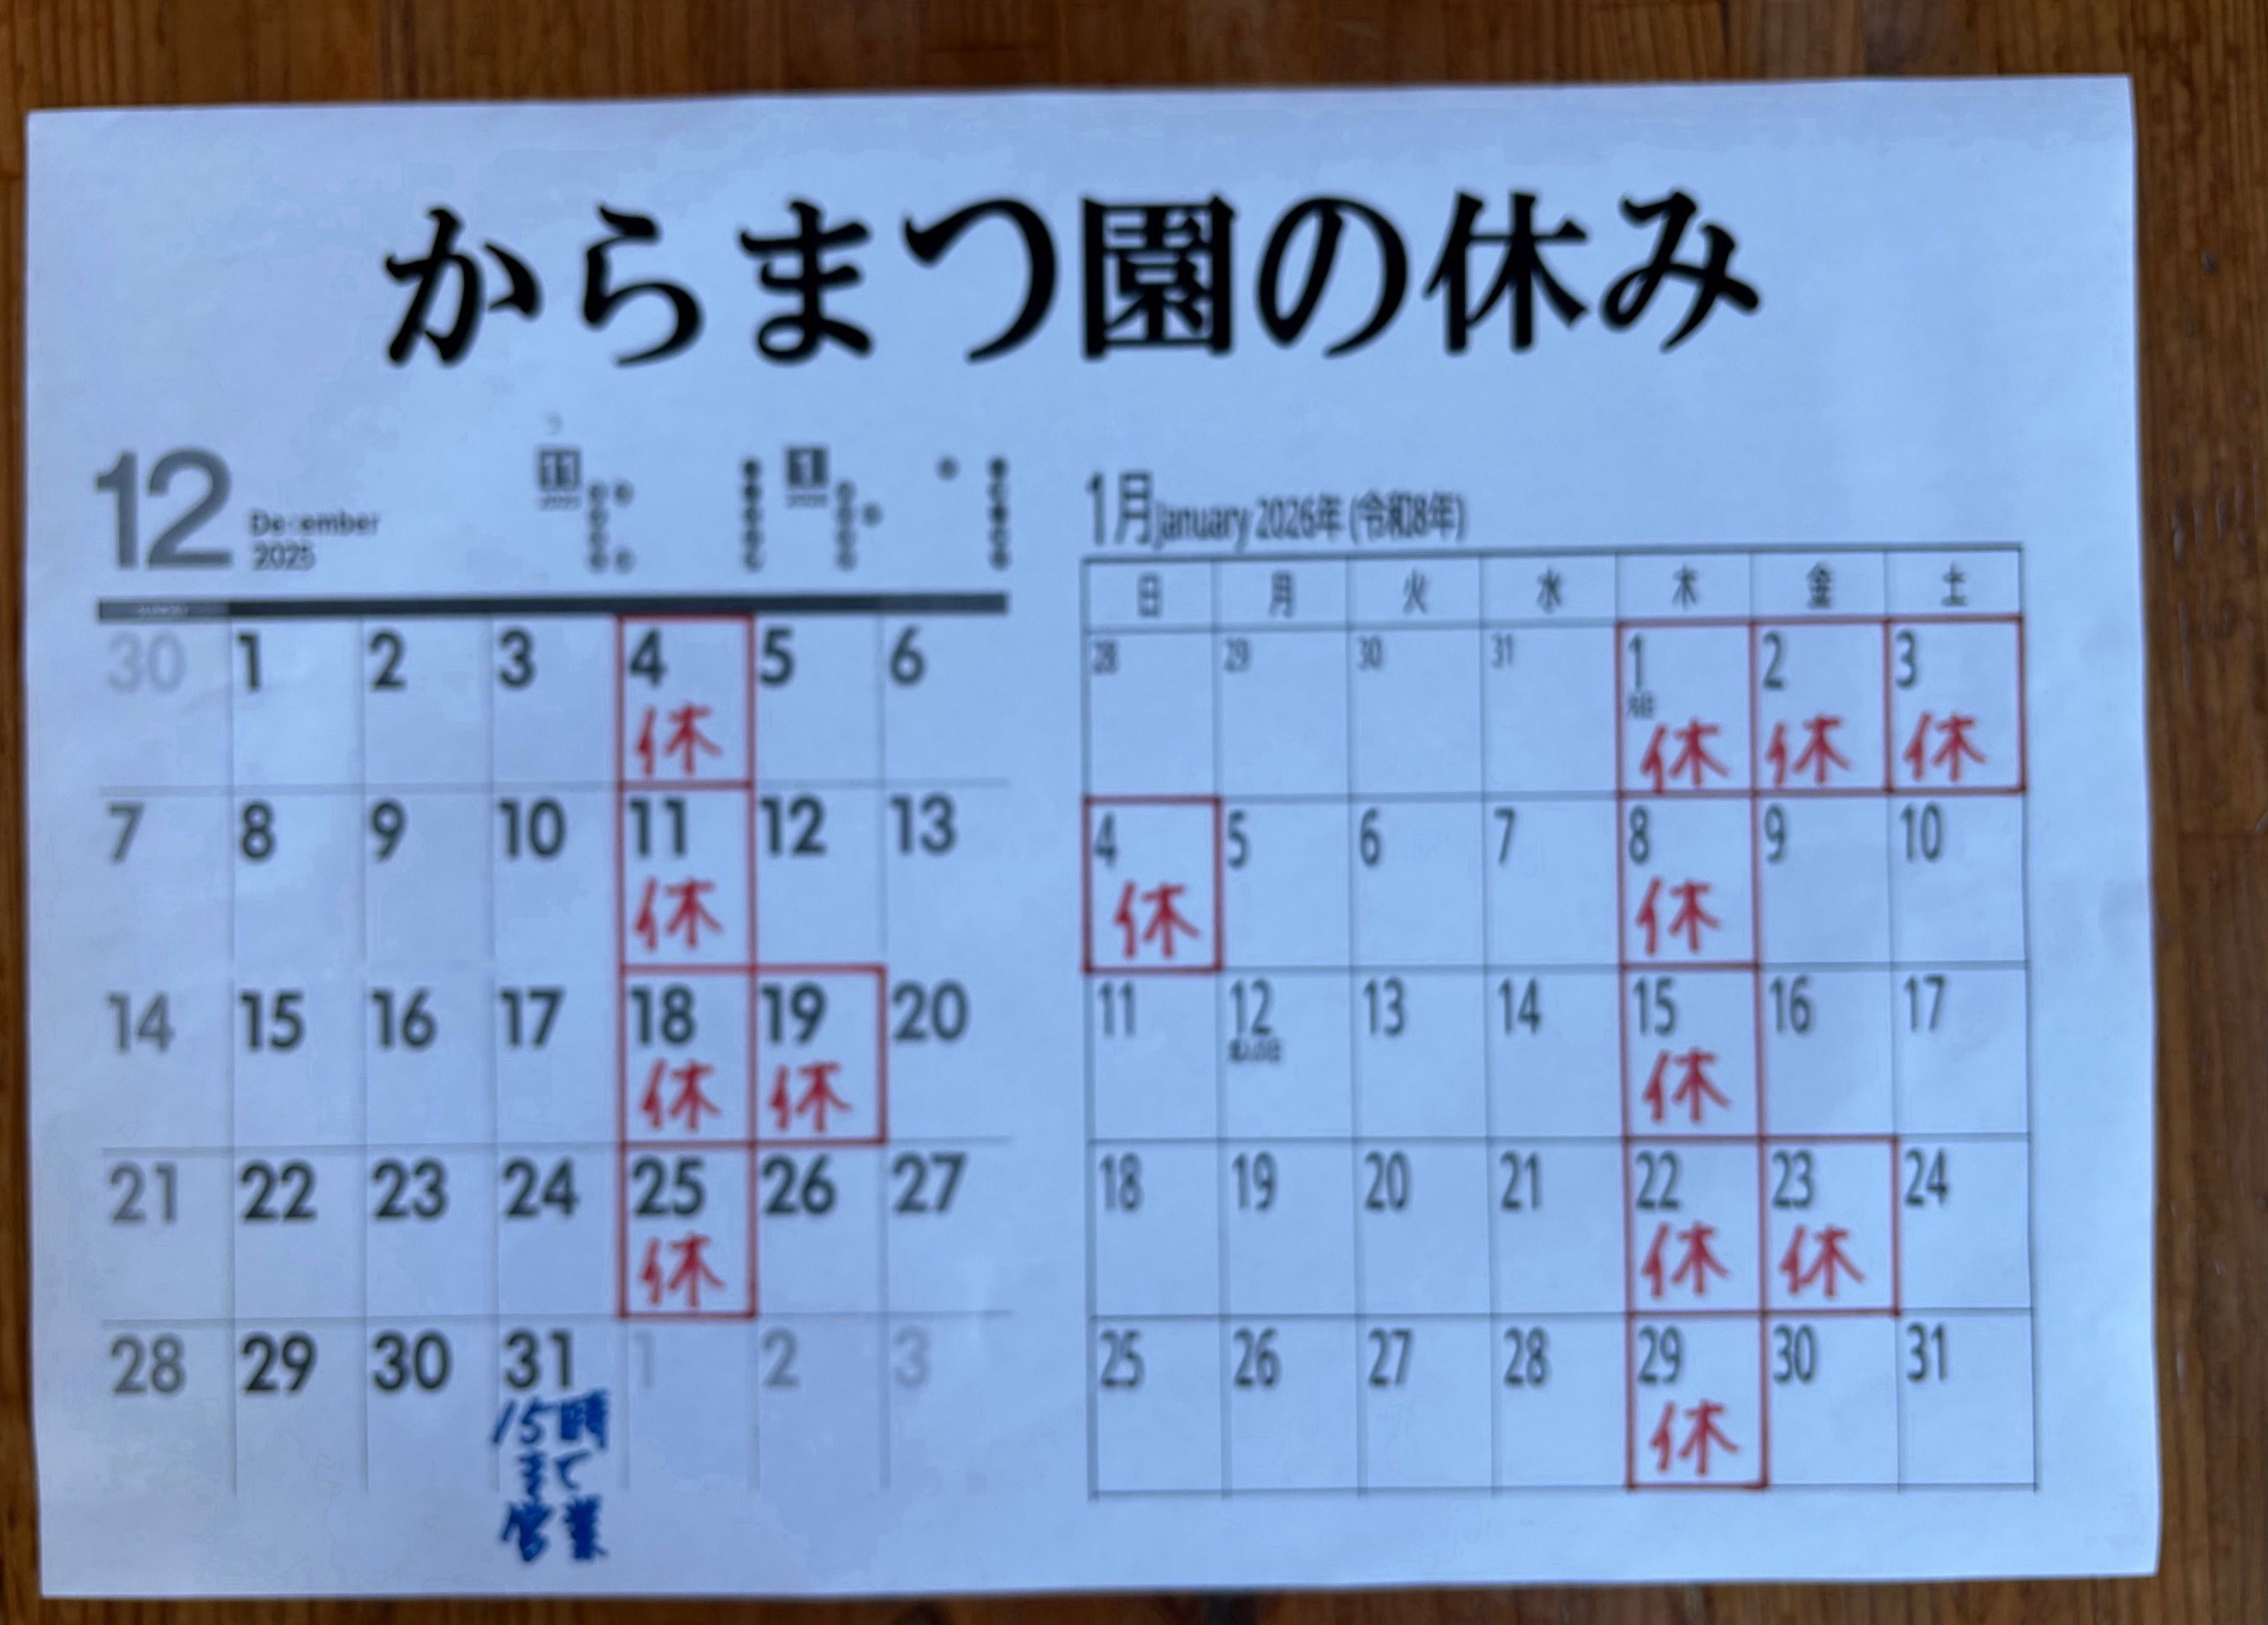 からまつ園の休み
12 December
2025
11
1
30 1 2 3 4 5 6
休
7 8 9 10 11 12 13
休
14 15 16 17 18 19 20
休 休
21 22 23 24 25 26 27
休
28 29 30 31 1 2 3
15時
まで
営業
1月 January 2026年 (令和8年)
日 月 火 水 木 金 土
28 29 30 31 1 2 3
元日
休 休 休
4 5 6 7 8 9 10
休 休
11 12 13 14 15 16 17
成人の日
休
18 19 20 21 22 23 24
休 休
25 26 27 28 29 30 31
休